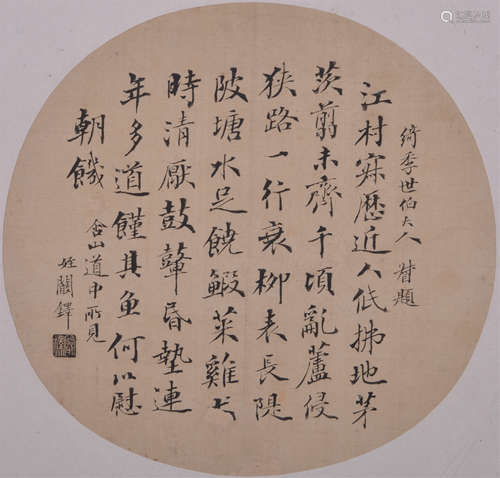 綺季世伯大人督題
江村寂歷近人低拂地茅
茨翦未齊千頃亂蘆侵
狹路一行衰柳表長隄
陂塘水足饒鰕菜雞犬
時清厭鼓鼙昏墊連
年多道饉其魚何以慰
朝饑
山道中所見
姪鐸